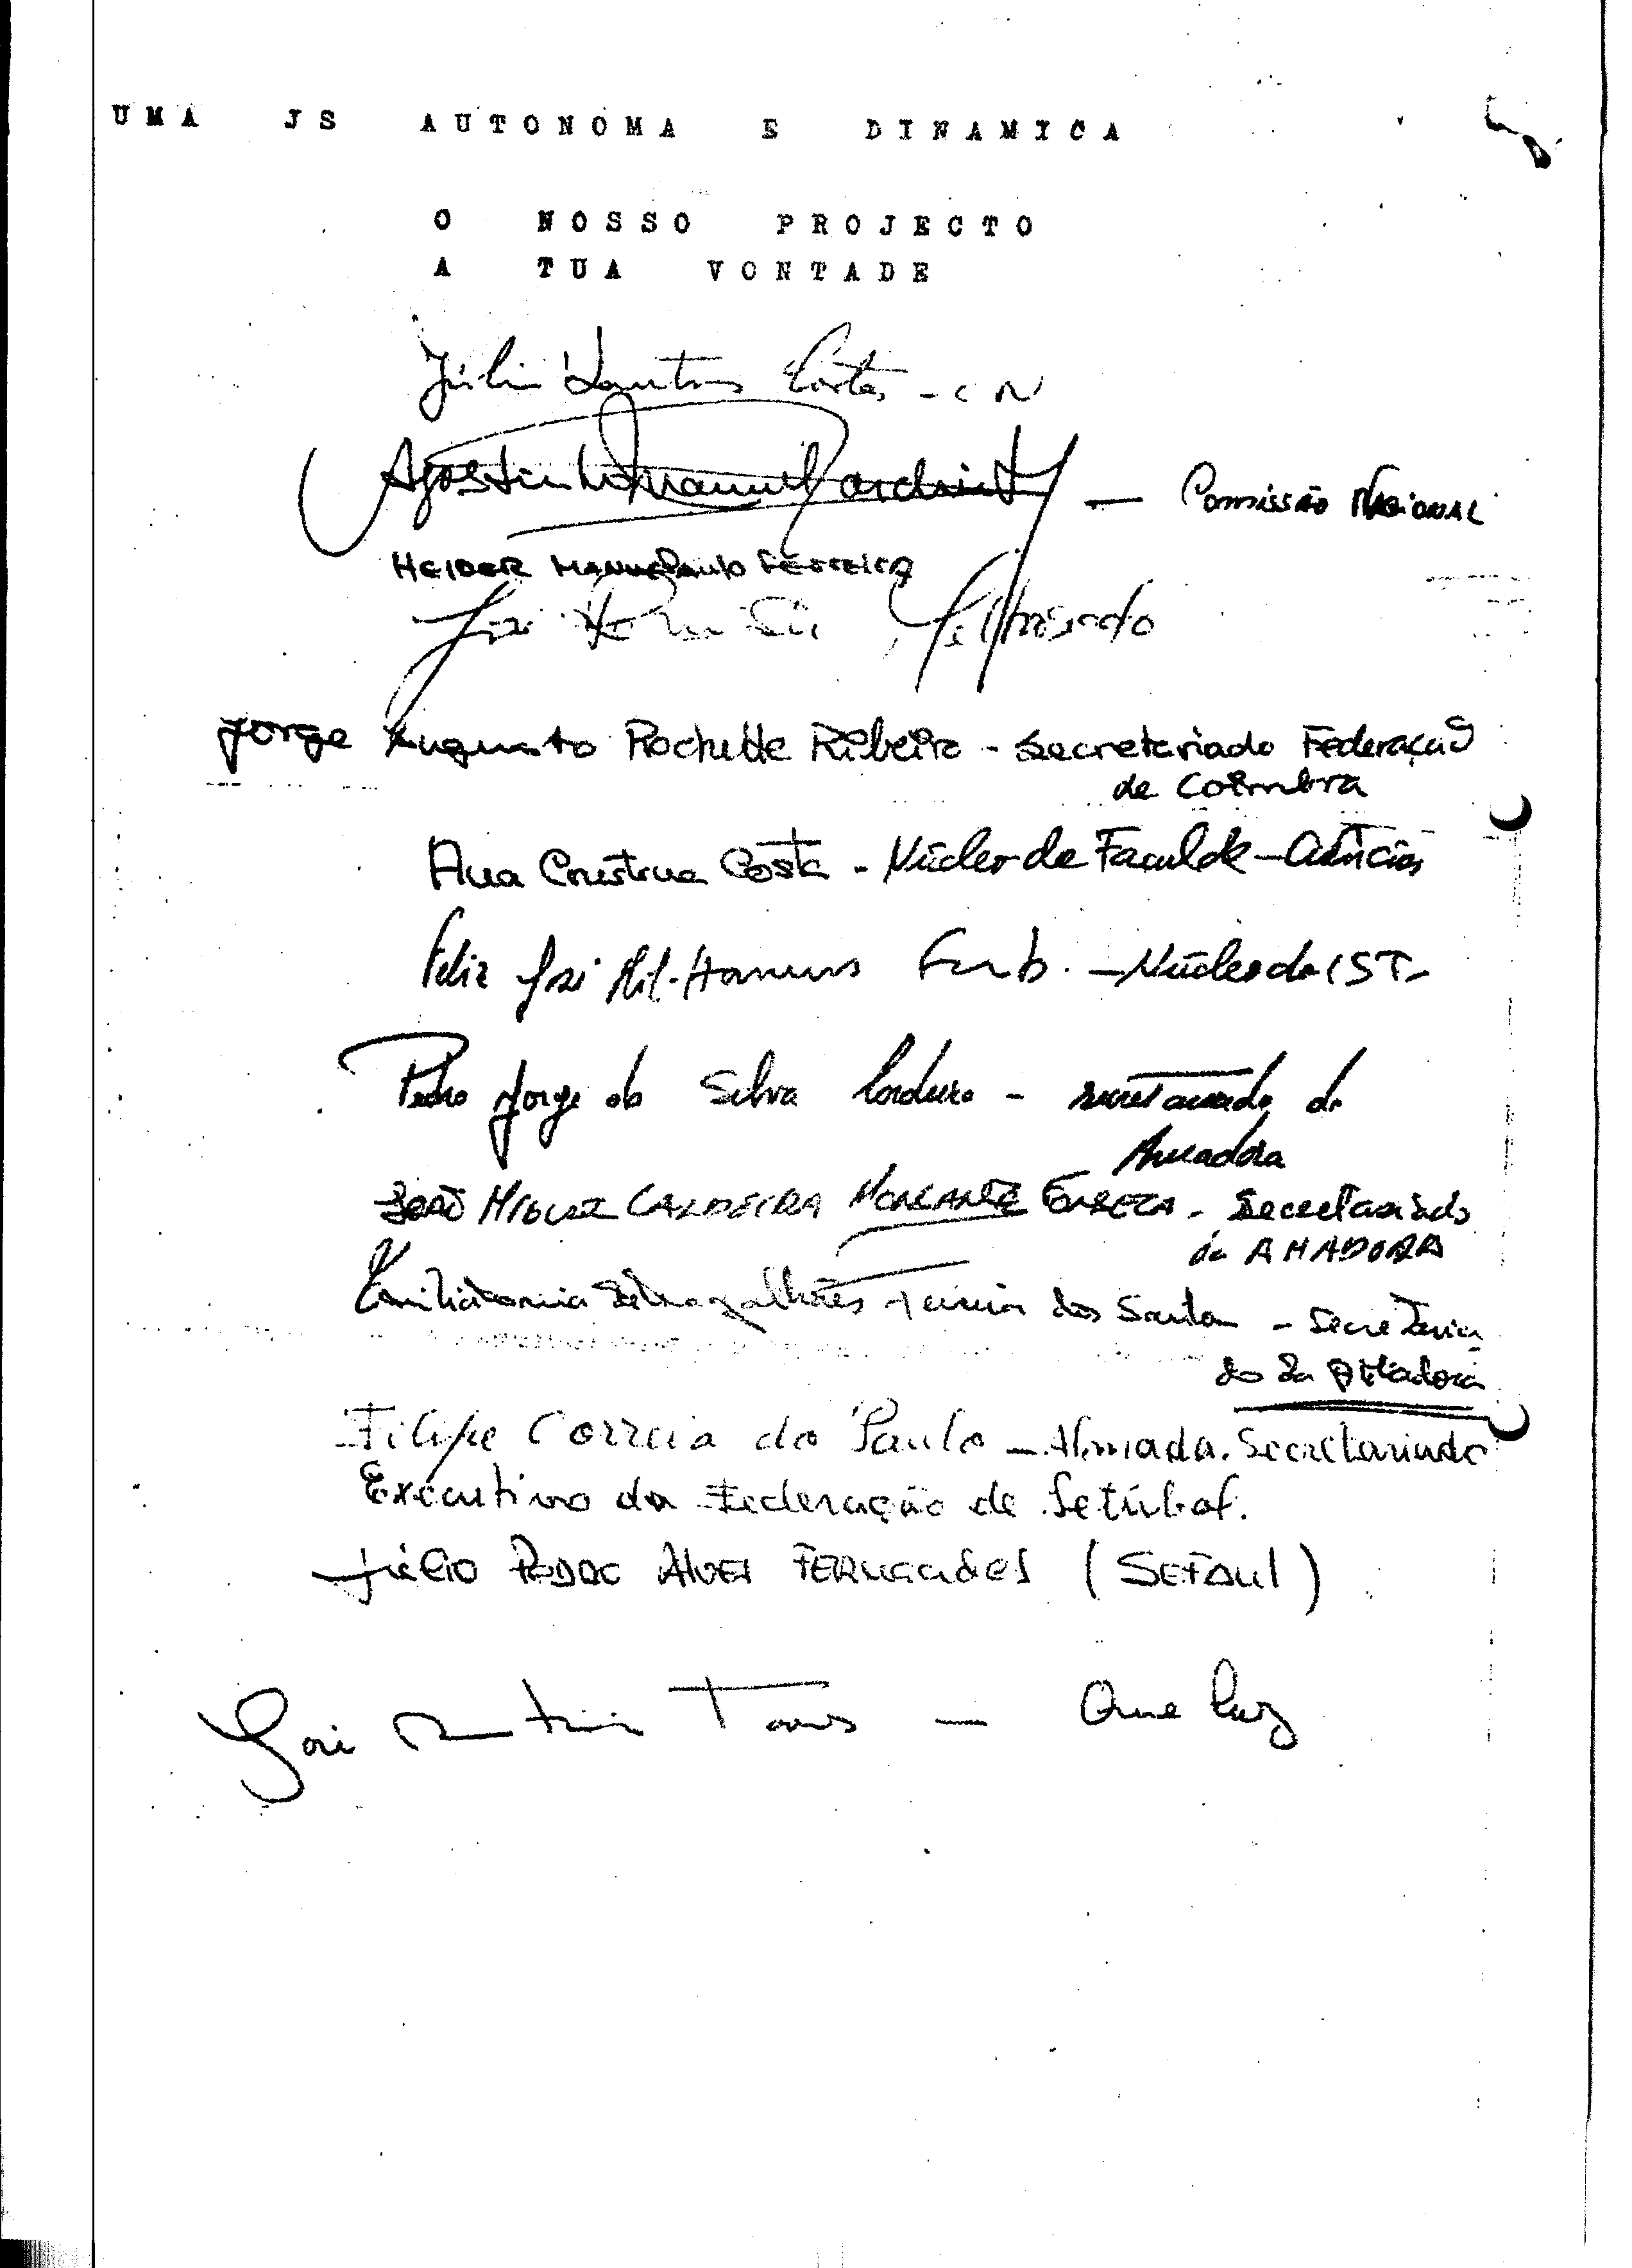 UMA JS AUTONOMA E DINAMICA
O NOSSO PROJECTO
A TUA VONTADE
Júlio Santos Cortes - CN
Agostinho Manuel — Comissão Nacional
HELDER MANUEL PAULO FERREIRA
José
Jorge Augusto Rochette Ribeiro - Secretariado Federação
de Coimbra
Ana Cristina Costa - Núcleo de Faculd de - Ciências
Feliz José Mil-Homens - Núcleo do IST-
Pedro Jorge da Silva Cordeiro - secretariado da
Amadora
JOÃO MIGUEL CALDEIRA FONSECA - Secretariado
da AMADORA
Magalhães dos Santos - Secretaria
do da Amadora
Filipe Correia do Paulo - Almada. Secretariado
Executivo da Federação de Setúbal.
Júlio PEDRO Alves FERNANDES (SETÚBAL)
José Tavares — Queluz